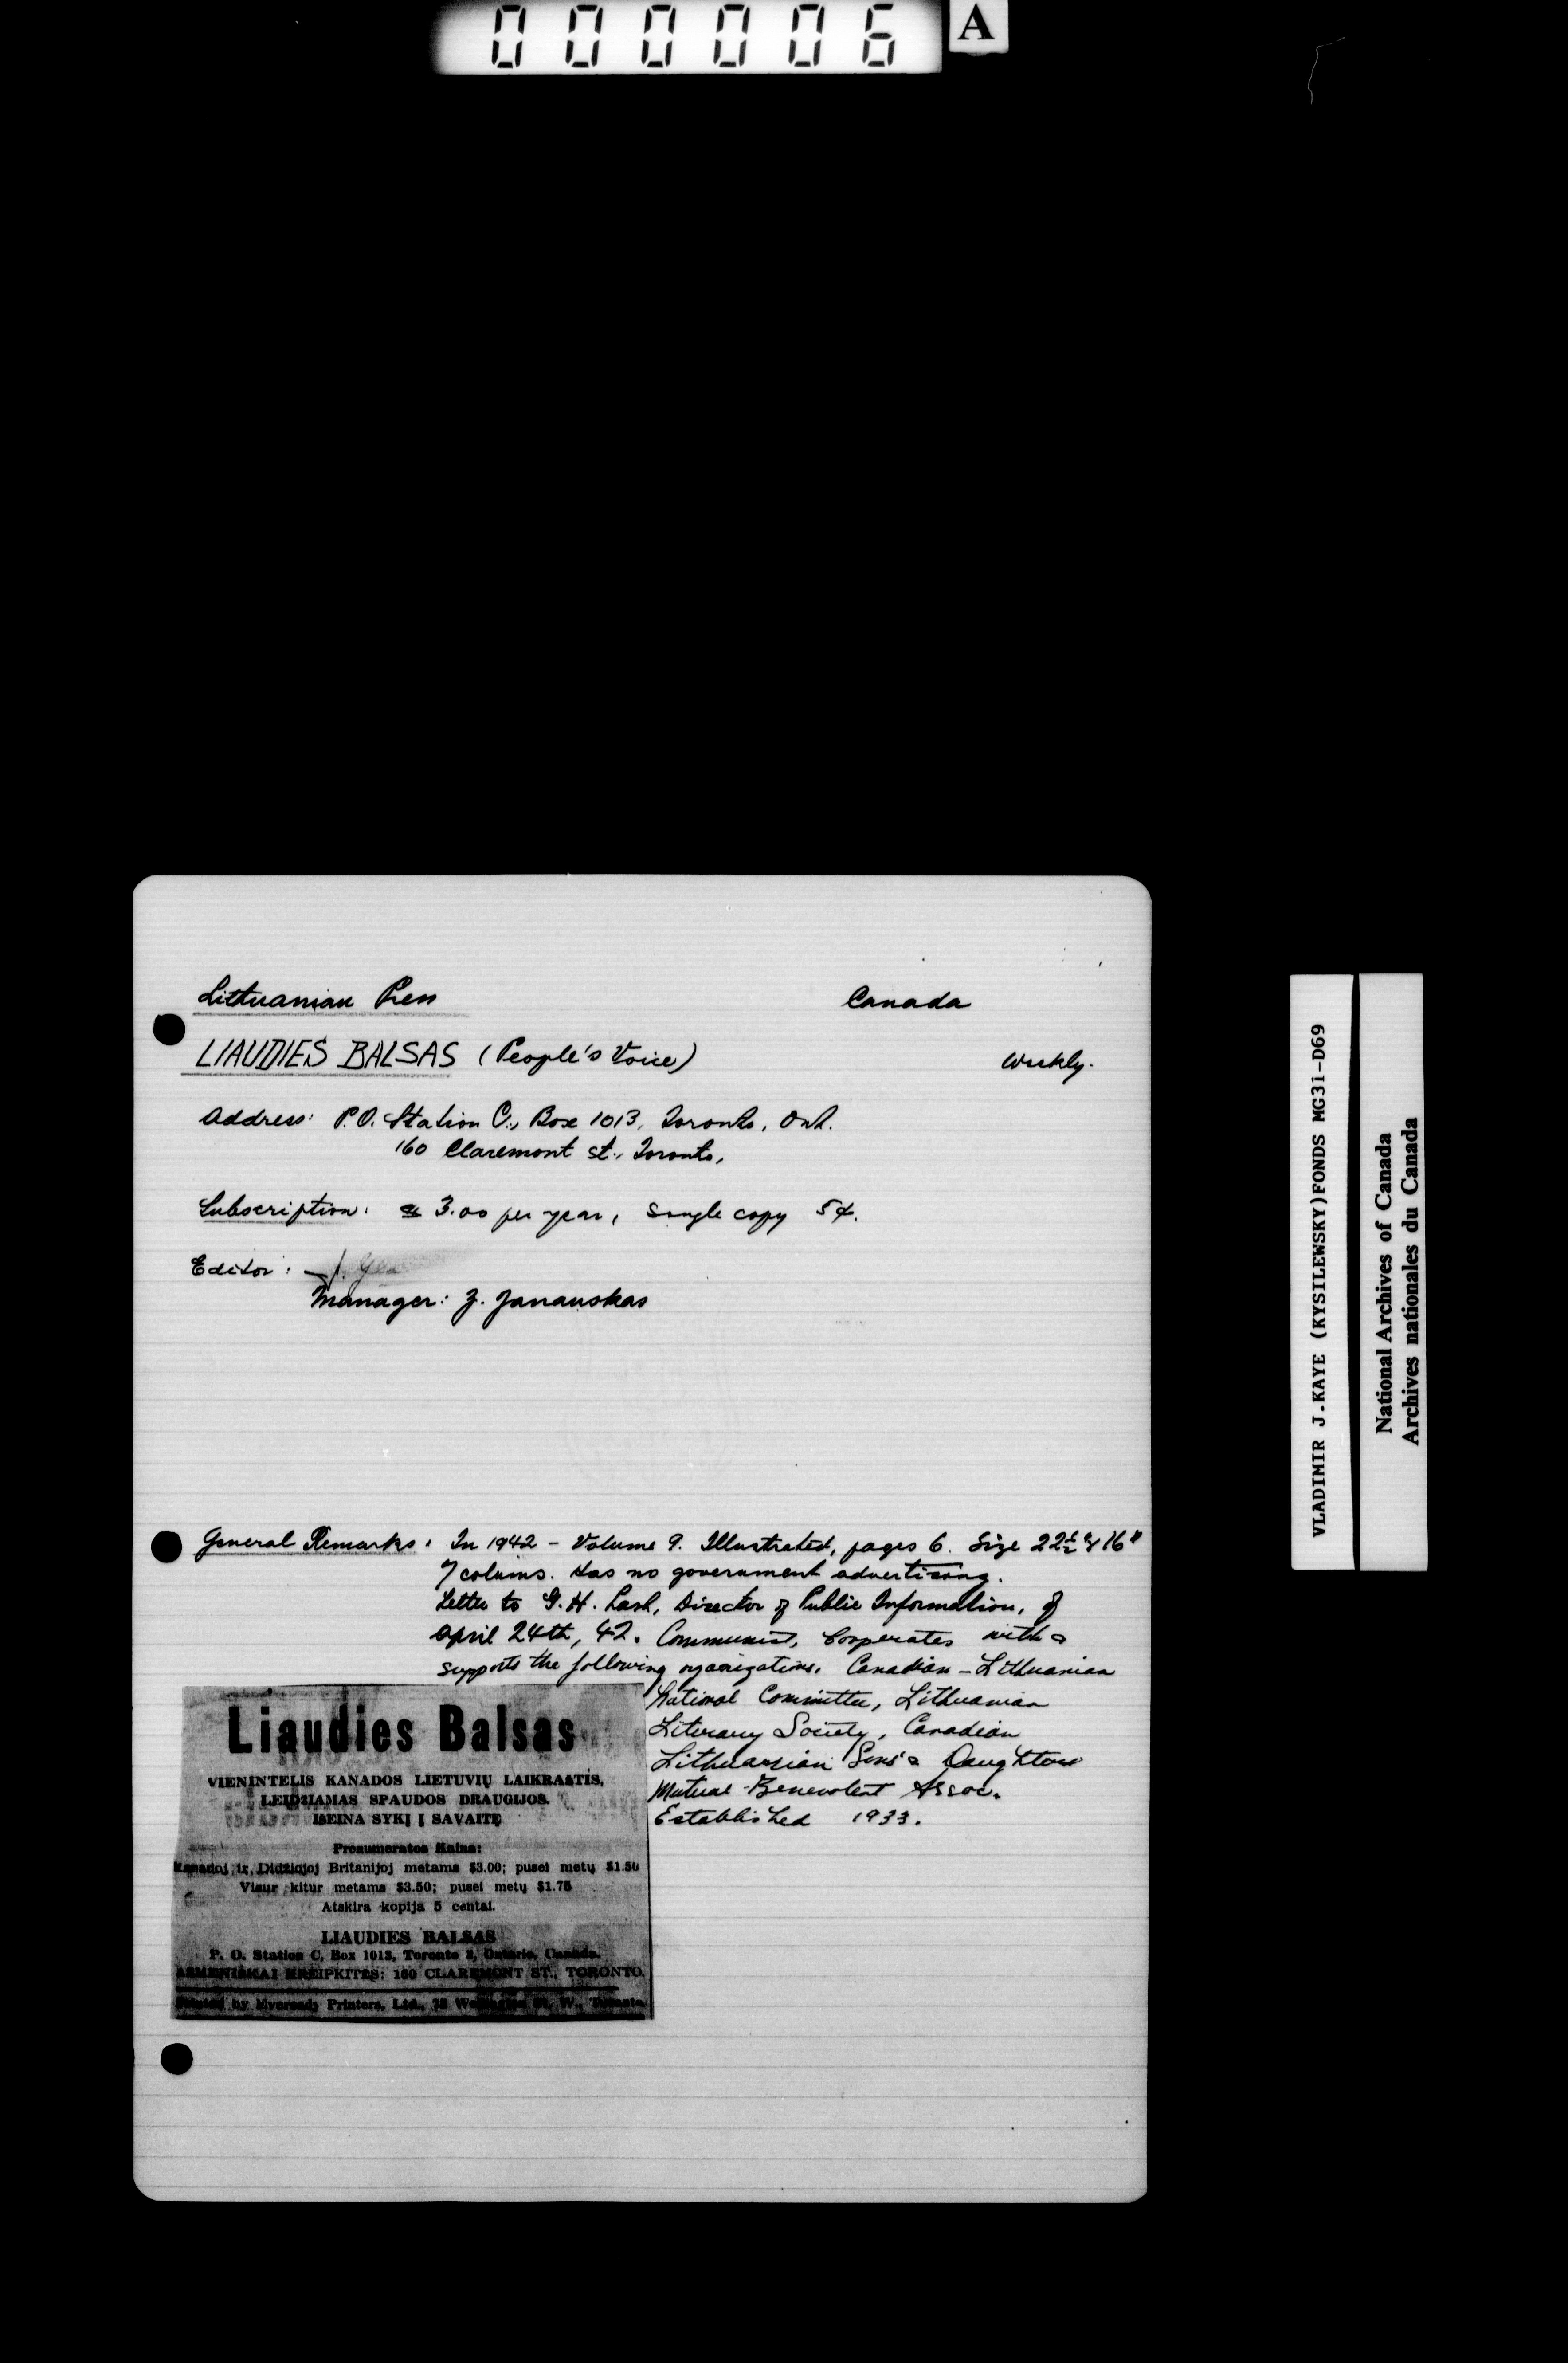 000006 A
Lithuanian Press Canada
LIAUDIES BALSAS (People's Voice) Weekly.
Address: P.O. Station C., Box 1013, Toronto, Ont.
160 Claremont st., Toronto,
Subscription: $ 3.00 per year, single copy 5¢.
Editor: J.
Manager: J. Janauskas
General Remarks: In 1942 - Volume 9. Illustrated, pages 6. Size 22½ x 16"
7 colums. Has no government advertising.
Letter to G.H. Lash, Director of Public Information, of
April 24th, 42. Communist, Cooperates with &
supports the following organizations. Canadian-Lithuanian
National Committee, Lithuanian
Literary Society, Canadian
Lithuanian Sons' & Daughters
Mutual-Benevolent Assoc.
Established 1933.
Liaudies Balsas
VIENINTELIS KANADOS LIETUVIŲ LAIKRAŠTIS,
LEIDŽIAMAS SPAUDOS DRAUGIJOS.
IŠEINA SYKĮ Į SAVAITĘ
Prenumeratos Kaina:
Kanadoj ir Didžiojoj Britanijoj metams $3.00; pusei metų $1.50
Visur kitur metams $3.50; pusei metų $1.75
Atskira kopija 5 centai.
LIAUDIES BALSAS
P. O. Station C, Box 1013, Toronto 3, Ontario, Canada.
ASMENIŠKAI KREIPKITĖS: 160 CLAREMONT ST., TORONTO.
Printed by Eveready Printers, Ltd., 78 W., Toronto
VLADIMIR J.KAYE (KYSILEWSKY)FONDS MG31-D69
National Archives of Canada
Archives nationales du Canada